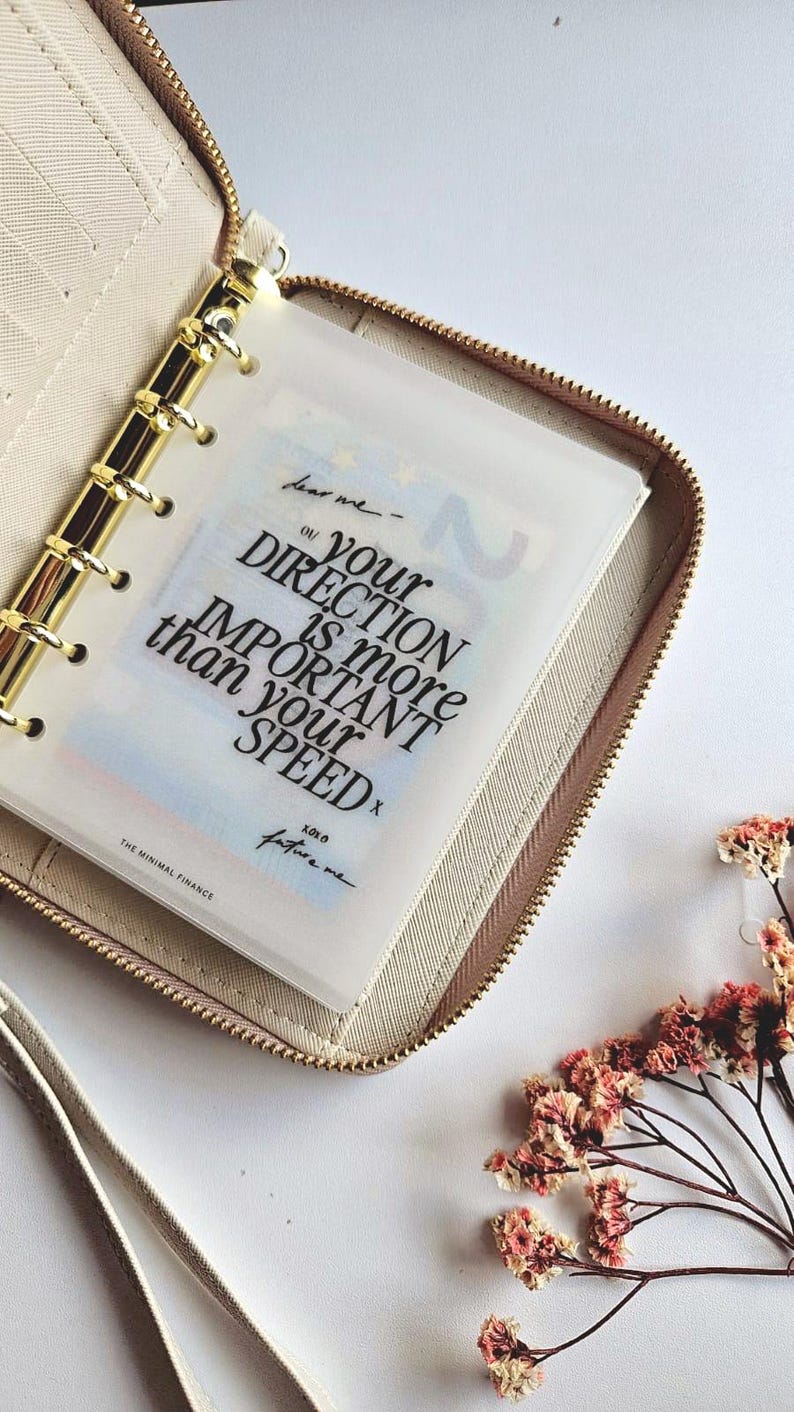 dear me -
01/ your
DIRECTION
is more
IMPORTANT
than your
SPEED x
xoxo
future me
THE MINIMAL FINANCE